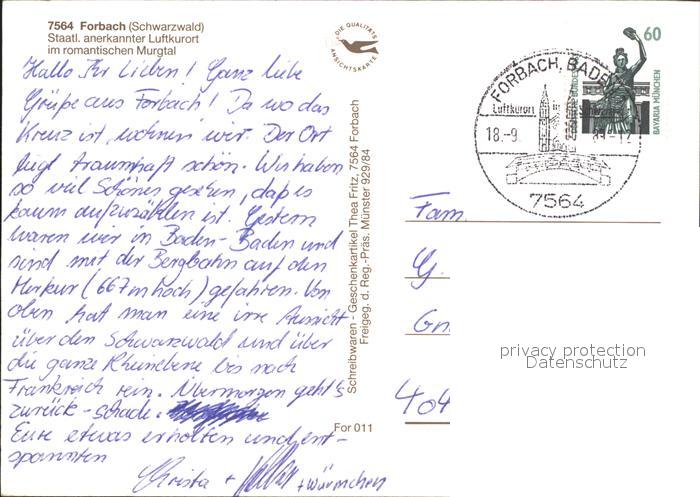 7564 Forbach (Schwarzwald)
Staatl. anerkannter Luftkurort
im romantischen Murgtal
Hallo Ihr Lieben! Ganz liebe
Grüße aus Forbach! Da wo das
Kreuz ist, wohnen wir. Der Ort
liegt traumhaft schön. Wir haben
so viel Schönes gesehen, daß es
kaum aufzuzählen ist. Gestern
waren wir in Baden-Baden und
sind mit der Bergbahn auf den
Merkur (667m hoch) gefahren. Von
oben hat man eine irre Aussicht
über den Schwarzwald und über
die ganze Rheinebene bis nach
Frankreich rein. Übermorgen geht's
zurück - schade.
Eure etwas erholten und ent-
spannten
Christa + + Würmchen
DIE QUALITÄTS
ANSICHTSKARTE
Schreibwaren - Geschenkartikel Thea Fritz, 7564 Forbach
Freigeg. d. Reg.-Präs. Münster 929/84
For 011
60
BAVARIA MÜNCHEN
FORBACH, BADEN
Luftkurort
18.-9.
7564
Fam.
G.
Gn
404
privacy protection
Datenschutz